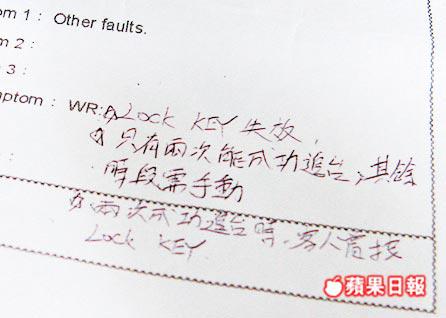 om 1 : Other faults.
m 2 :
3 :
mptom : WR: ① LOCK KEY 失效，
② 只有兩次能成功追台，其餘
時段需手動
:
① 兩次成功追台時，客人有按
Lock KEY
蘋果日報